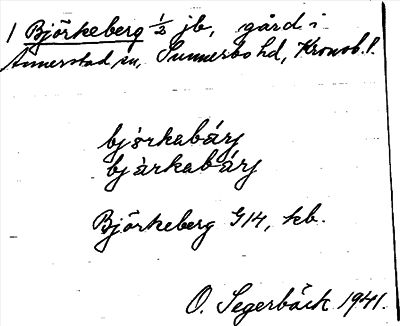 1 Björkeberg 1/2 jb, gård i
Annerstad sn, Sunnerbo hd, Kronob. l.
björkabárj
bjàrkabárj
Björkeberg G14, kb.
O. Segerbäck 1941.